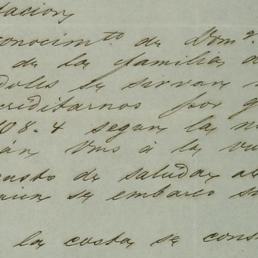 tacion,
conocim.to de Dom.o
de la familia d
doles se sirvan
creditarnos por
08-4 segun la n
án Vms á la vu
usto de saludar a
uien se embarcó s
la costa se cons